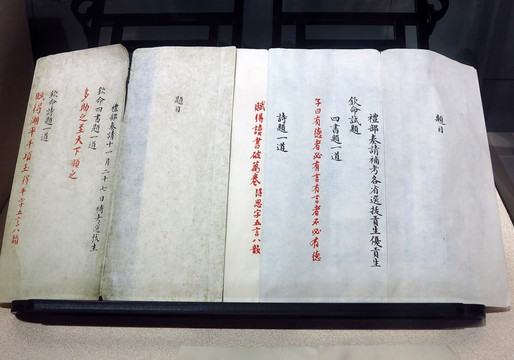 題目
禮部奏請補考各省選拔貢生優貢生
欽命試題
四書題一道
子曰有德者必有言有言者不必有德
詩題一道
賦得讀書破萬卷得思字五言八韻
題目
禮部奏請十一月二十七日補考選拔生
欽命四書題一道
多助之至天下順之
欽命詩題一道
賦得湖平千頃玉得平字五言八韻